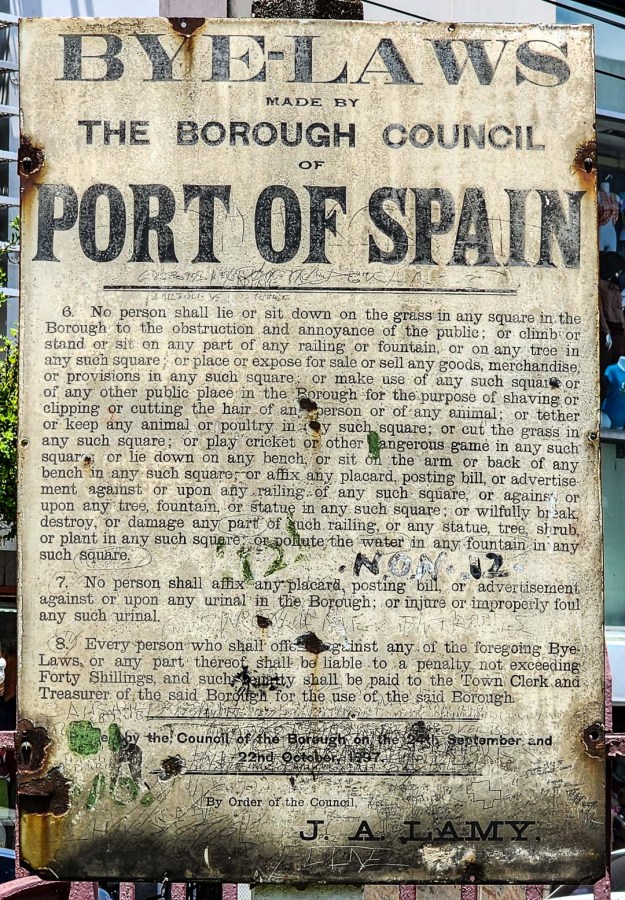 BYE-LAWS
MADE BY
THE BOROUGH COUNCIL
OF
PORT OF SPAIN
6. No person shall lie or sit down on the grass in any square in the
Borough to the obstruction and annoyance of the public; or climb or
stand or sit on any part of any railing or fountain, or on any tree in
any such square; or place or expose for sale or sell any goods, merchandise,
or provisions in any such square; or make use of any such square or
of any other public place in the Borough for the purpose of shaving or
clipping or cutting the hair of any person or of any animal; or tether
or keep any animal or poultry in any such square; or cut the grass in
any such square; or play cricket or other dangerous game in any such
square; or lie down on any bench, or sit on the arm or back of any
bench in any such square; or affix any placard, posting bill, or advertise-
ment against or upon any railing of any such square, or against or
upon any tree, fountain, or statue in any such square; or wilfully break,
destroy, or damage any part of such railing, or any statue, tree, shrub,
or plant in any such square; or pollute the water in any fountain in any
such square.
7. No person shall affix any placard, posting bill, or advertisement
against or upon any urinal in the Borough; or injure or improperly foul
any such urinal.
8. Every person who shall offend against any of the foregoing Bye-
Laws, or any part thereof, shall be liable to a penalty not exceeding
Forty Shillings, and such penalty shall be paid to the Town Clerk and
Treasurer of the said Borough for the use of the said Borough.
by the Council of the Borough on the 24th September and
22nd October, 1897.
By Order of the Council,
J. A. LAMY,